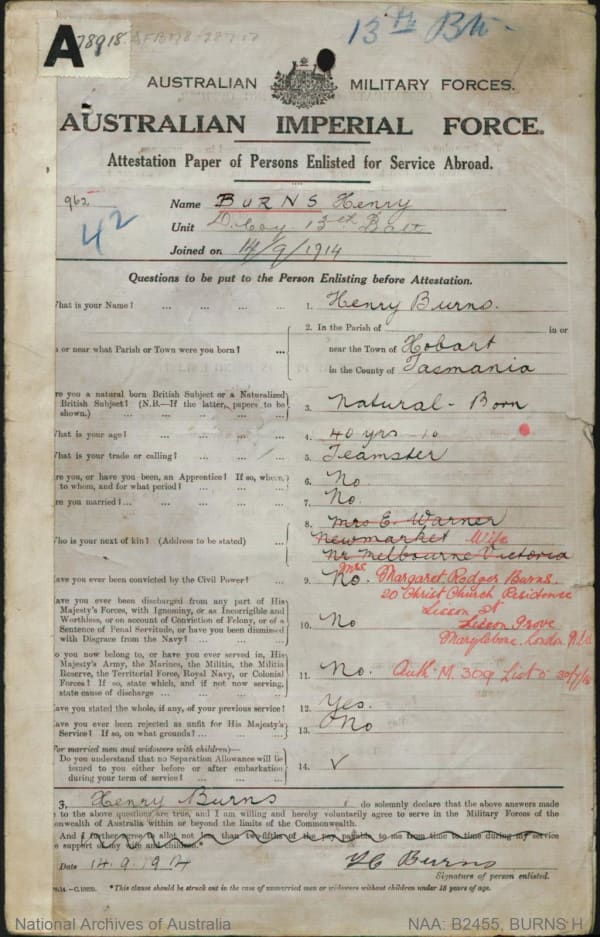 A
78918
13th Bn.
AUSTRALIAN MILITARY FORCES.
AUSTRALIAN IMPERIAL FORCE.
Attestation Paper of Persons Enlisted for Service Abroad.
962
42
Name BURNS Henry
Unit D. Coy 13th Batt
Joined on 14/9/1914
Questions to be put to the Person Enlisting before Attestation.
hat is your Name? ... ... ... ... 1. Henry Burns.
2. In the Parish of in or
or near what Parish or Town were you born? ... near the Town of Hobart
in the County of Tasmania
re you a natural born British Subject or a Naturalized
British Subject? (N.B.—If the latter, papers to be
shown.) ... ... ... ... 3. Natural-Born
hat is your age? ... ... ... ... 4. 40 yrs
hat is your trade or calling? ... ... ... 5. Teamster
re you, or have you been, an Apprentice? If so, where,
to whom, and for what period? ... ... ... 6. No.
re you married? ... ... ... ... 7. No.
8. Mrs E. Warner
ho is your next of kin? (Address to be stated) ... Newmarket Wife
Nr Melbourne Victoria
Mrs
ave you ever been convicted by the Civil Power? ... 9. No. Margaret Burns.
20 Christ Church Residence
ave you ever been discharged from any part of His
Majesty's Forces, with Ignominy, or as Incorrigible and
Worthless, or on account of Conviction of Felony, or of a
Sentence of Penal Servitude, or have you been dismissed
with Disgrace from the Navy? ... ... 10. No
Lisson St
Lisson Grove
Marylebone. London
o you now belong to, or have you ever served in, His
Majesty's Army, the Marines, the Militia, the Militia
Reserve, the Territorial Force, Royal Navy, or Colonial
Forces? If so, state which, and if not now serving,
state cause of discharge ... ... ... 11. No. Auth M. 309 List
ave you stated the whole, if any, of your previous service? 12. Yes.
ave you ever been rejected as unfit for His Majesty's
Service? If so, on what grounds? ... ... 13. No
For married men and widowers with children)—
Do you understand that no Separation Allowance will be
issued to you either before or after embarkation
during your term of service? ... ... 14. ✓
3, Henry Burns do solemnly declare that the above answers made
to the above questions are true, and I am willing and hereby voluntarily agree to serve in the Military Forces of the
onwealth of Australia within or beyond the limits of the Commonwealth.
And I further agree to allot not less than two-fifths of the pay payable to me from time to time during my service
e support of my wife and children.*
Date 14.9.1914 Burns
Signature of person enlisted.
*This clause should be struck out in the case of unmarried men or widowers without children under 18 years of age.
National Archives of Australia NAA: B2455, BURNS H